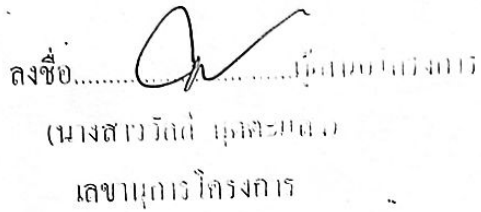 ลงชื่อ....................ผู้เสนอโครงการ
(นางสาววัลลี
เลขานุการโครงการ